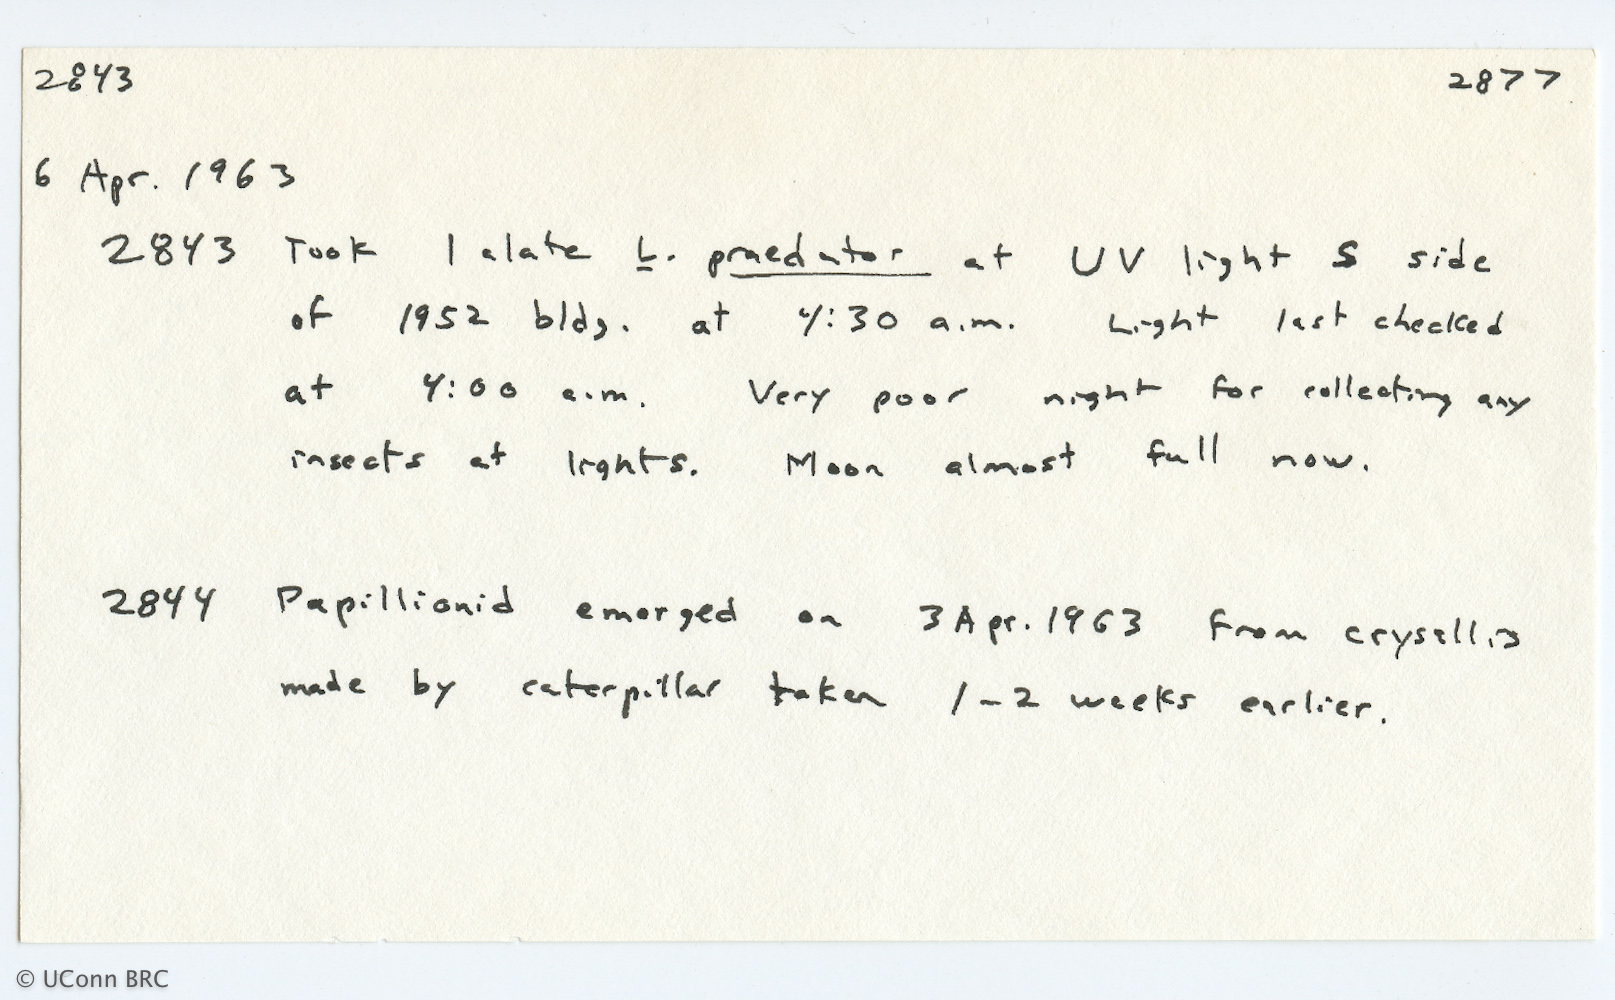 2843 2877
6 Apr. 1963
2843 Took 1 alate L. praedator at UV light S side
of 1952 bldg. at 4:30 a.m. Light last checked
at 4:00 a.m. Very poor night for collecting any
insects at lights. Moon almost full now.
2844 Papillionid emerged on 3 Apr. 1963 from crysallis
made by caterpillar taken 1-2 weeks earlier.
© UConn BRC